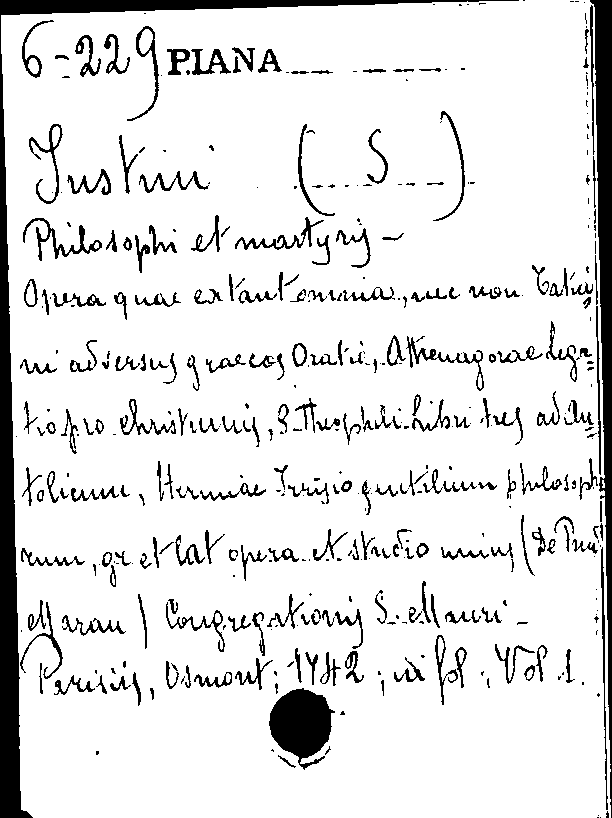 6-229 PIANA
Justini (S)
Philosophi et martyris -
Opera quae extant omnia, nec non Tatia=
ni adversus graecos Oratio, Athenagorae lega=
tio pro christianis, S. Theophili Libri tres ad Au=
tolicum, Hermiae Irrisio gentilium philosopho
rum, gr et lat opera et studio unius (De Prud
Maran) Congregationis S. Mauri -
Parisiis, Osmont; 1742; in fol; Vol 1.